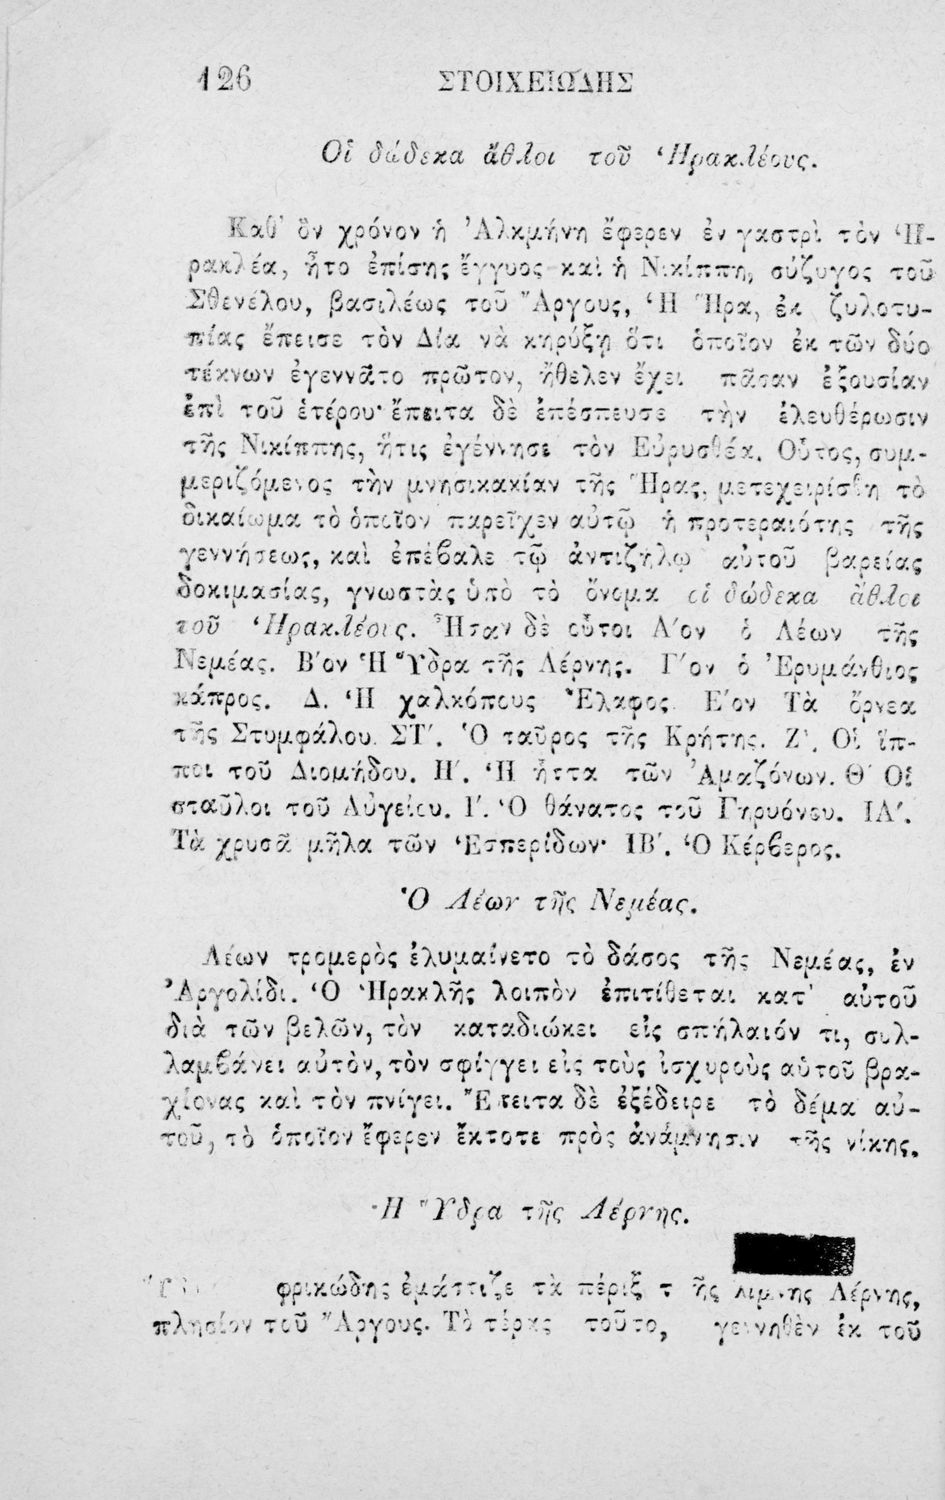 126 ΣΤΟΙΧΕΙΩΔΗΣ
Οἱ δώδεκα ἄθλοι τοῦ Ἡρακλέους.
Καθ' ὃν χρόνον ἡ Ἀλκμήνη ἔφερεν ἐν γαστρὶ τὸν Ἡ-
ρακλέα, ἦτο ἐπίσης ἔγγυος καὶ ἡ Νικίππη, σύζυγος τοῦ
Σθενέλου, βασιλέως τοῦ Ἄργους, Ἡ Ἥρα, ἐκ ζυλοτυ-
πίας ἔπεισε τὸν Δία νὰ κηρύξῃ ὅτι ὁποῖον ἐκ τῶν δύο
τέκνων ἐγεννᾶτο πρῶτον, ἤθελεν ἔχει πᾶσαν ἐξουσίαν
ἐπὶ τοῦ ἑτέρου· ἔπειτα δὲ ἐπέσπευσε τὴν ἐλευθέρωσιν
τῆς Νικίππης, ἥτις ἐγέννησε τὸν Εὐρυσθέα. Οὗτος, συμ-
μεριζόμενος τὴν μνησικακίαν τῆς Ἥρας, μετεχειρίσθη τὸ
δικαίωμα τὸ ὁποῖον παρεῖχεν αὐτῷ ἡ προτεραιότης τῆς
γεννήσεως, καὶ ἐπέβαλε τῷ ἀντιζήλῳ αὐτοῦ βαρείας
δοκιμασίας, γνωστὰς ὑπὸ τὸ ὄνομα οἱ δώδεκα ἄθλοι
τοῦ Ἡρακλέους. Ἦσαν δὲ οὗτοι Α'ον ὁ Λέων τῆς
Νεμέας. Β'ον Ἡ Ὕδρα τῆς Λέρνης. Γ'ον ὁ Ἐρυμάνθιος
κάπρος. Δ. Ἡ χαλκόπους Ἔλαφος. Ε'ον Τὰ ὄρνεα
τῆς Στυμφάλου. ΣΤ'. Ὁ ταῦρος τῆς Κρήτης. Ζ'. Οἱ ἵπ-
ποι τοῦ Διομήδου. Η'. Ἡ ἧττα τῶν Ἀμαζόνων. Θ' Οἱ
σταῦλοι τοῦ Αὐγείου. Ι'. Ὁ θάνατος τοῦ Γηρυόνου. ΙΑ'.
Τὰ χρυσᾶ μῆλα τῶν Ἑσπερίδων· ΙΒ'. Ὁ Κέρβερος.
Ὁ Λέων τῆς Νεμέας.
Λέων τρομερὸς ἐλυμαίνετο τὸ δάσος τῆς Νεμέας, ἐν
Ἀργολίδι. Ὁ Ἡρακλῆς λοιπὸν ἐπιτίθεται κατ' αὐτοῦ
διὰ τῶν βελῶν, τὸν καταδιώκει εἰς σπήλαιόν τι, συλ-
λαμβάνει αὐτὸν, τὸν σφίγγει εἰς τοὺς ἰσχυροὺς αὑτοῦ βρα-
χίονας καὶ τὸν πνίγει. Ἔπειτα δὲ ἐξέδειρε τὸ δέμα αὐ-
τοῦ, τὸ ὁποῖον ἔφερεν ἔκτοτε πρὸς ἀνάμνησιν τῆς νίκης.
Ἡ Ὕδρα τῆς Λέρνης.
φρικώδης ἐμάστιζε τὰ πέριξ τ ῆς λίμνης Λέρνης,
πλησίον τοῦ Ἄργους. Τὸ τέρας τοῦτο, γεννηθὲν ἐκ τοῦ